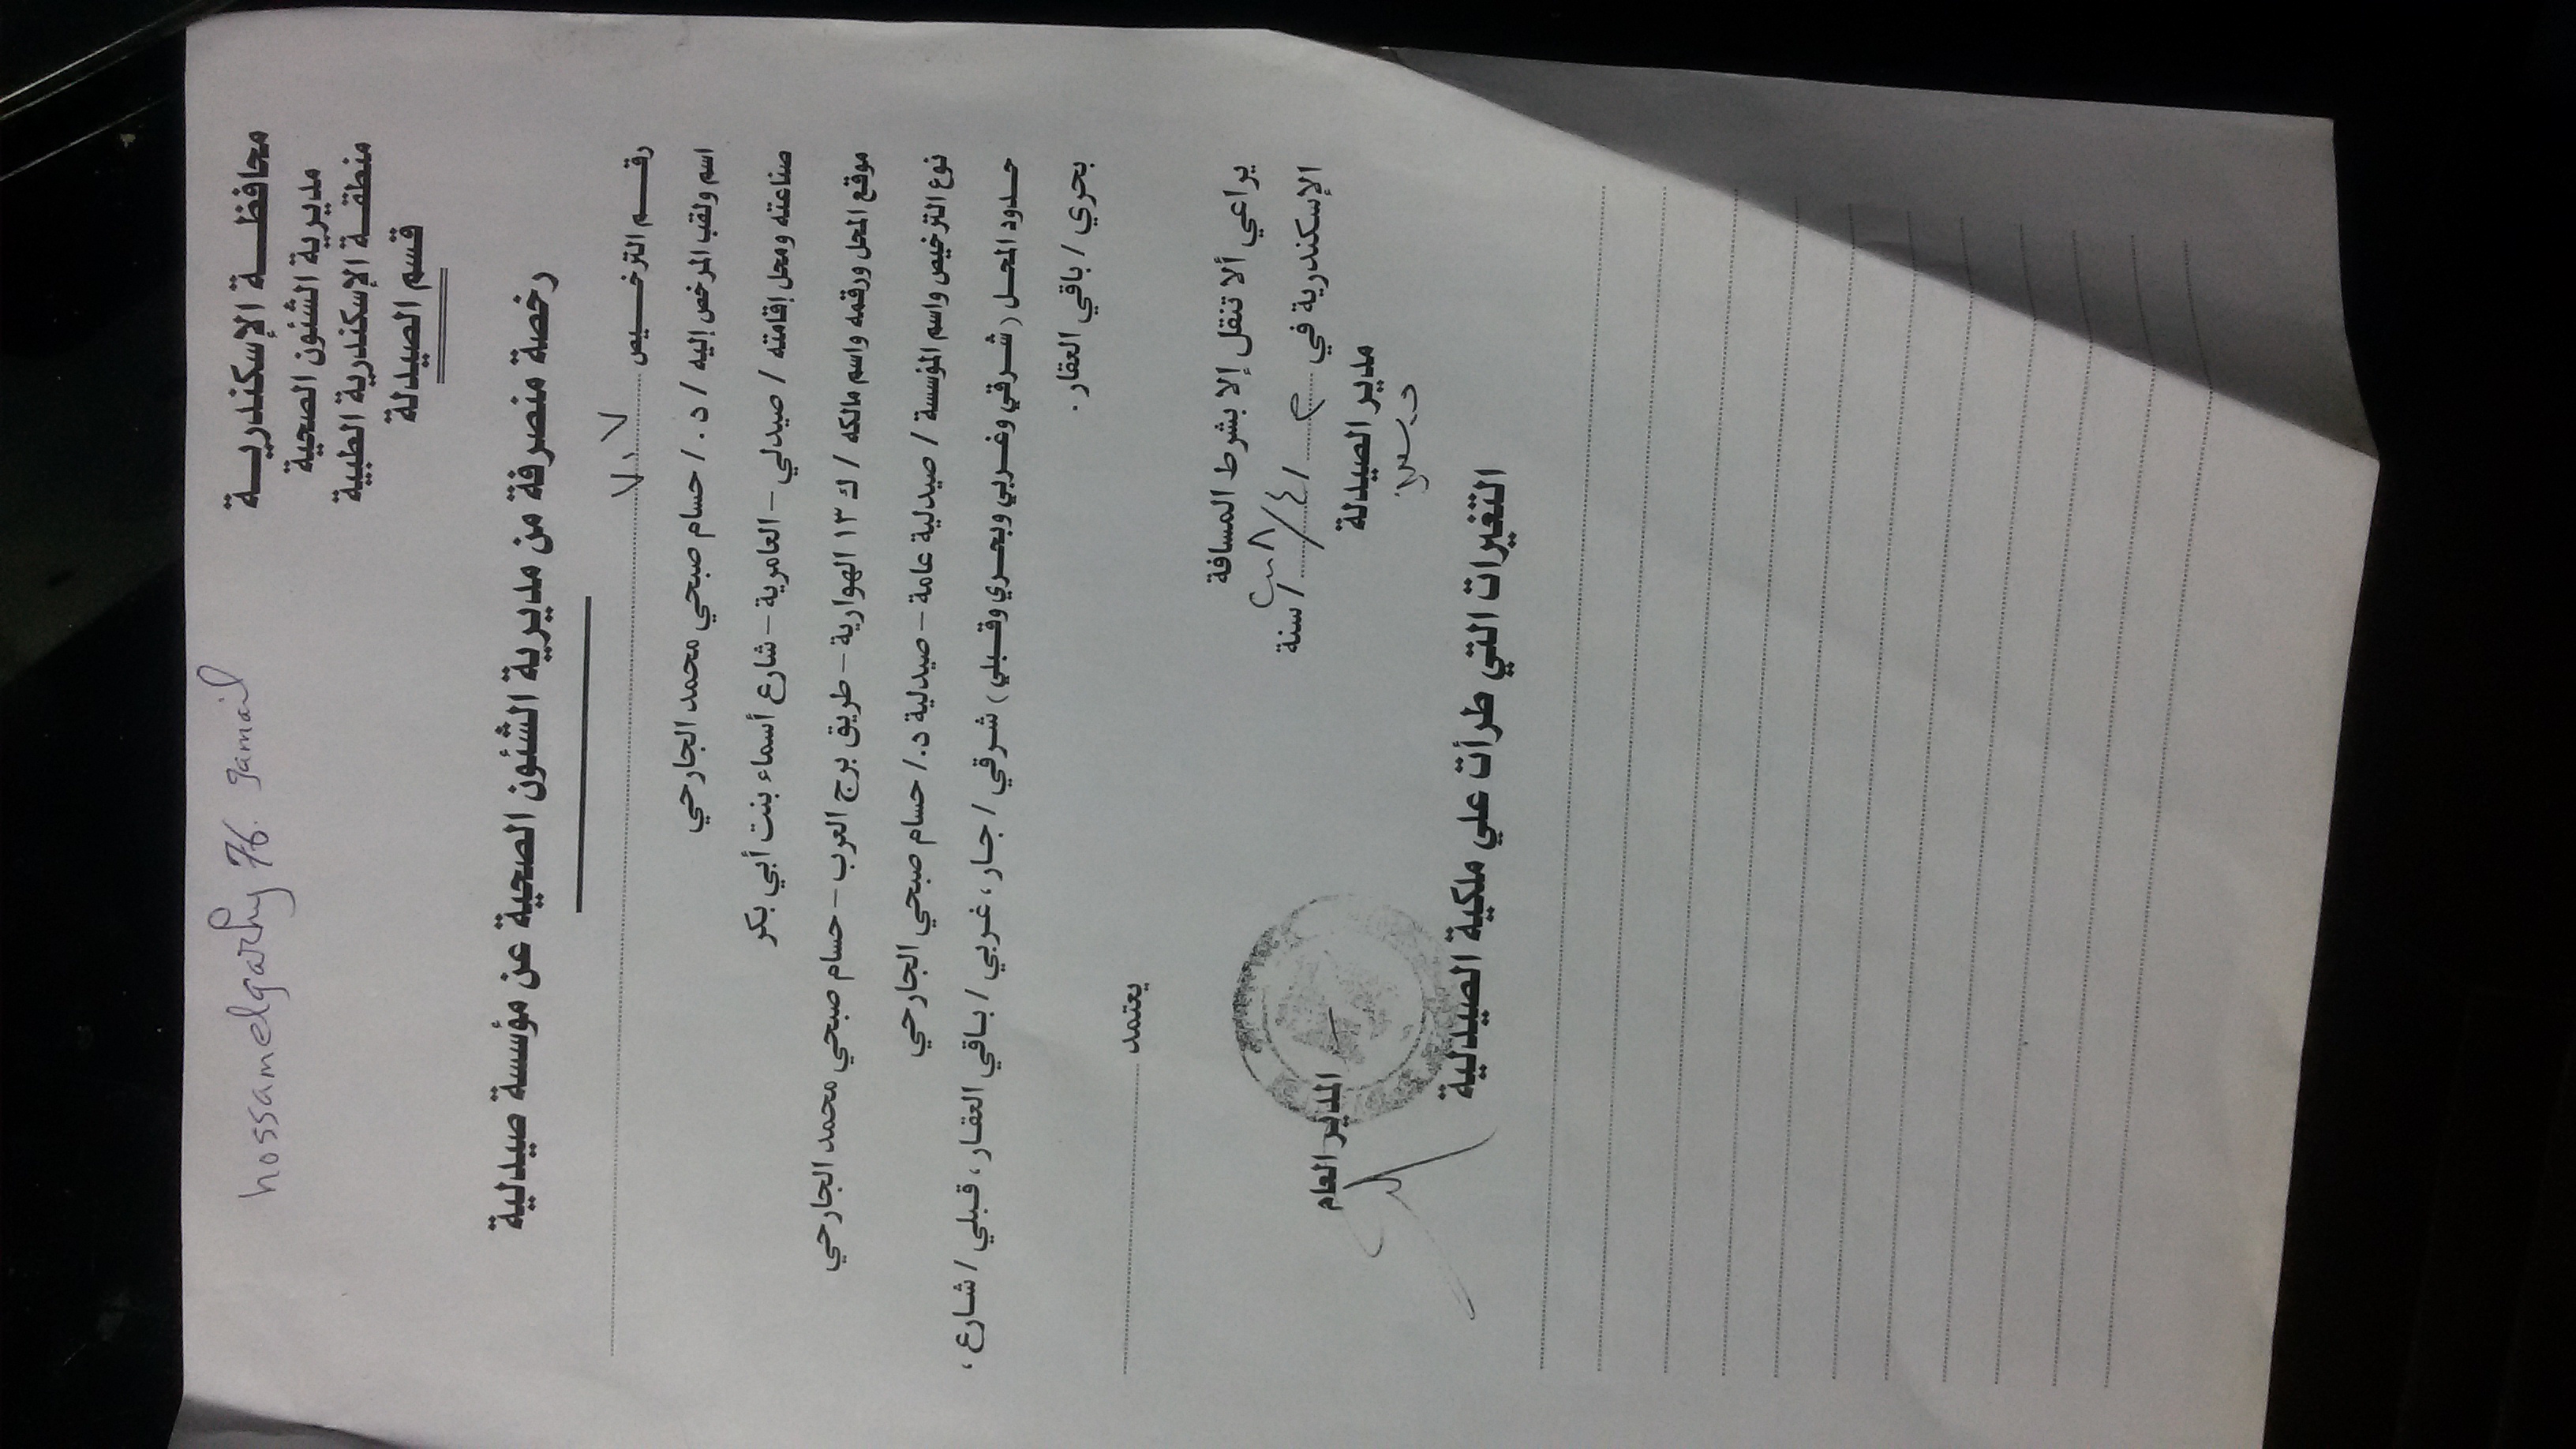 محافظة الإسكندرية
مديرية الشئون الصحية
منطقة الإسكندرية الطبية
قسم الصيدلة
hossamelgarhy 76. gamail
رخصة منصرفة من مديرية الشئون الصحية عن مؤسسة صيدلية
رقم الترخيص ٧١٧
اسم ولقب المرخص إليه / د. / حسام صبحي محمد الجارحي
صناعته ومحل إقامته / صيدلي - العامرية - شارع أسماء بنت أبي بكر
موقع المحل ورقمه واسم مالكه / ك ١٣ الهوارية - طريق برج العرب - حسام صبحي محمد الجارحي
نوع الترخيص واسم المؤسسة / صيدلية عامة - صيدلية د. / حسام صبحي الجارحي
حدود المحل (شرقي وغربي وبحري وقبلي) شرقي / جار، غربي / باقي العقار، قبلي / شارع،
بحري / باقي العقار.
يعتمد
يراعي ألا تنقل إلا بشرط المسافة
الإسكندرية في / / سنة
مدير الصيدلة
المدير العام
التغيرات التي طرأت علي ملكية الصيدلية